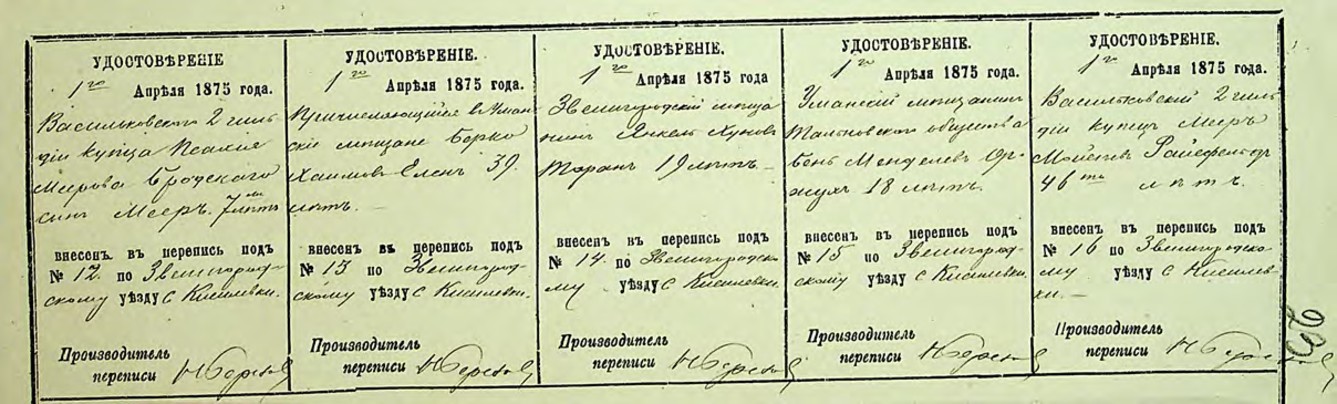 УДОСТОВѢРЕНІЕ
1го Апрѣля 1875 года.
Васильковскаго 2 гиль
діи купца Исакія
Меерова Бродскаго
сынъ Мееръ. 7 лѣтъ
внесенъ въ перепись подъ
№ 12. по Звенигород-
скому уѣзду с Киселевки.
Производитель
переписи
УДОСТОВѢРЕНІЕ.
1го Апрѣля 1875 года.
Причисляющійся в Уман
скіе мѣщане Берко
Хаимовъ Еленъ 39.
лѣтъ.
внесенъ въ перепись подъ
№ 13 по Звенигород-
скому уѣзду с Киселевки.
Производитель
переписи
УДОСТОВѢРЕНІЕ.
1го Апрѣля 1875 года
Звенигородскій мѣща
нинъ Янкель
Таранъ 19 лѣтъ.
внесенъ въ перепись подъ
№ 14. по Звенигородско
му уѣзду с Киселевки.
Производитель
переписи
УДОСТОВѢРЕНІЕ.
1го Апрѣля 1875 года.
Уманскій мѣщанинъ
Тальновскаго общества
Бенъ Менделевъ
18 лѣтъ.
внесенъ въ перепись подъ
№ 15 по Звенигород-
скому уѣзду с Киселевки.
Производитель
переписи
УДОСТОВѢРЕНІЕ.
1го Апрѣля 1875 года.
Васильковскій 2 гиль
діи купецъ Мееръ
Мойсеевъ
46 лѣтъ.
внесенъ въ перепись подъ
№ 16 по Звенигородско
му уѣзду с Киселев
ки.
Производитель
переписи